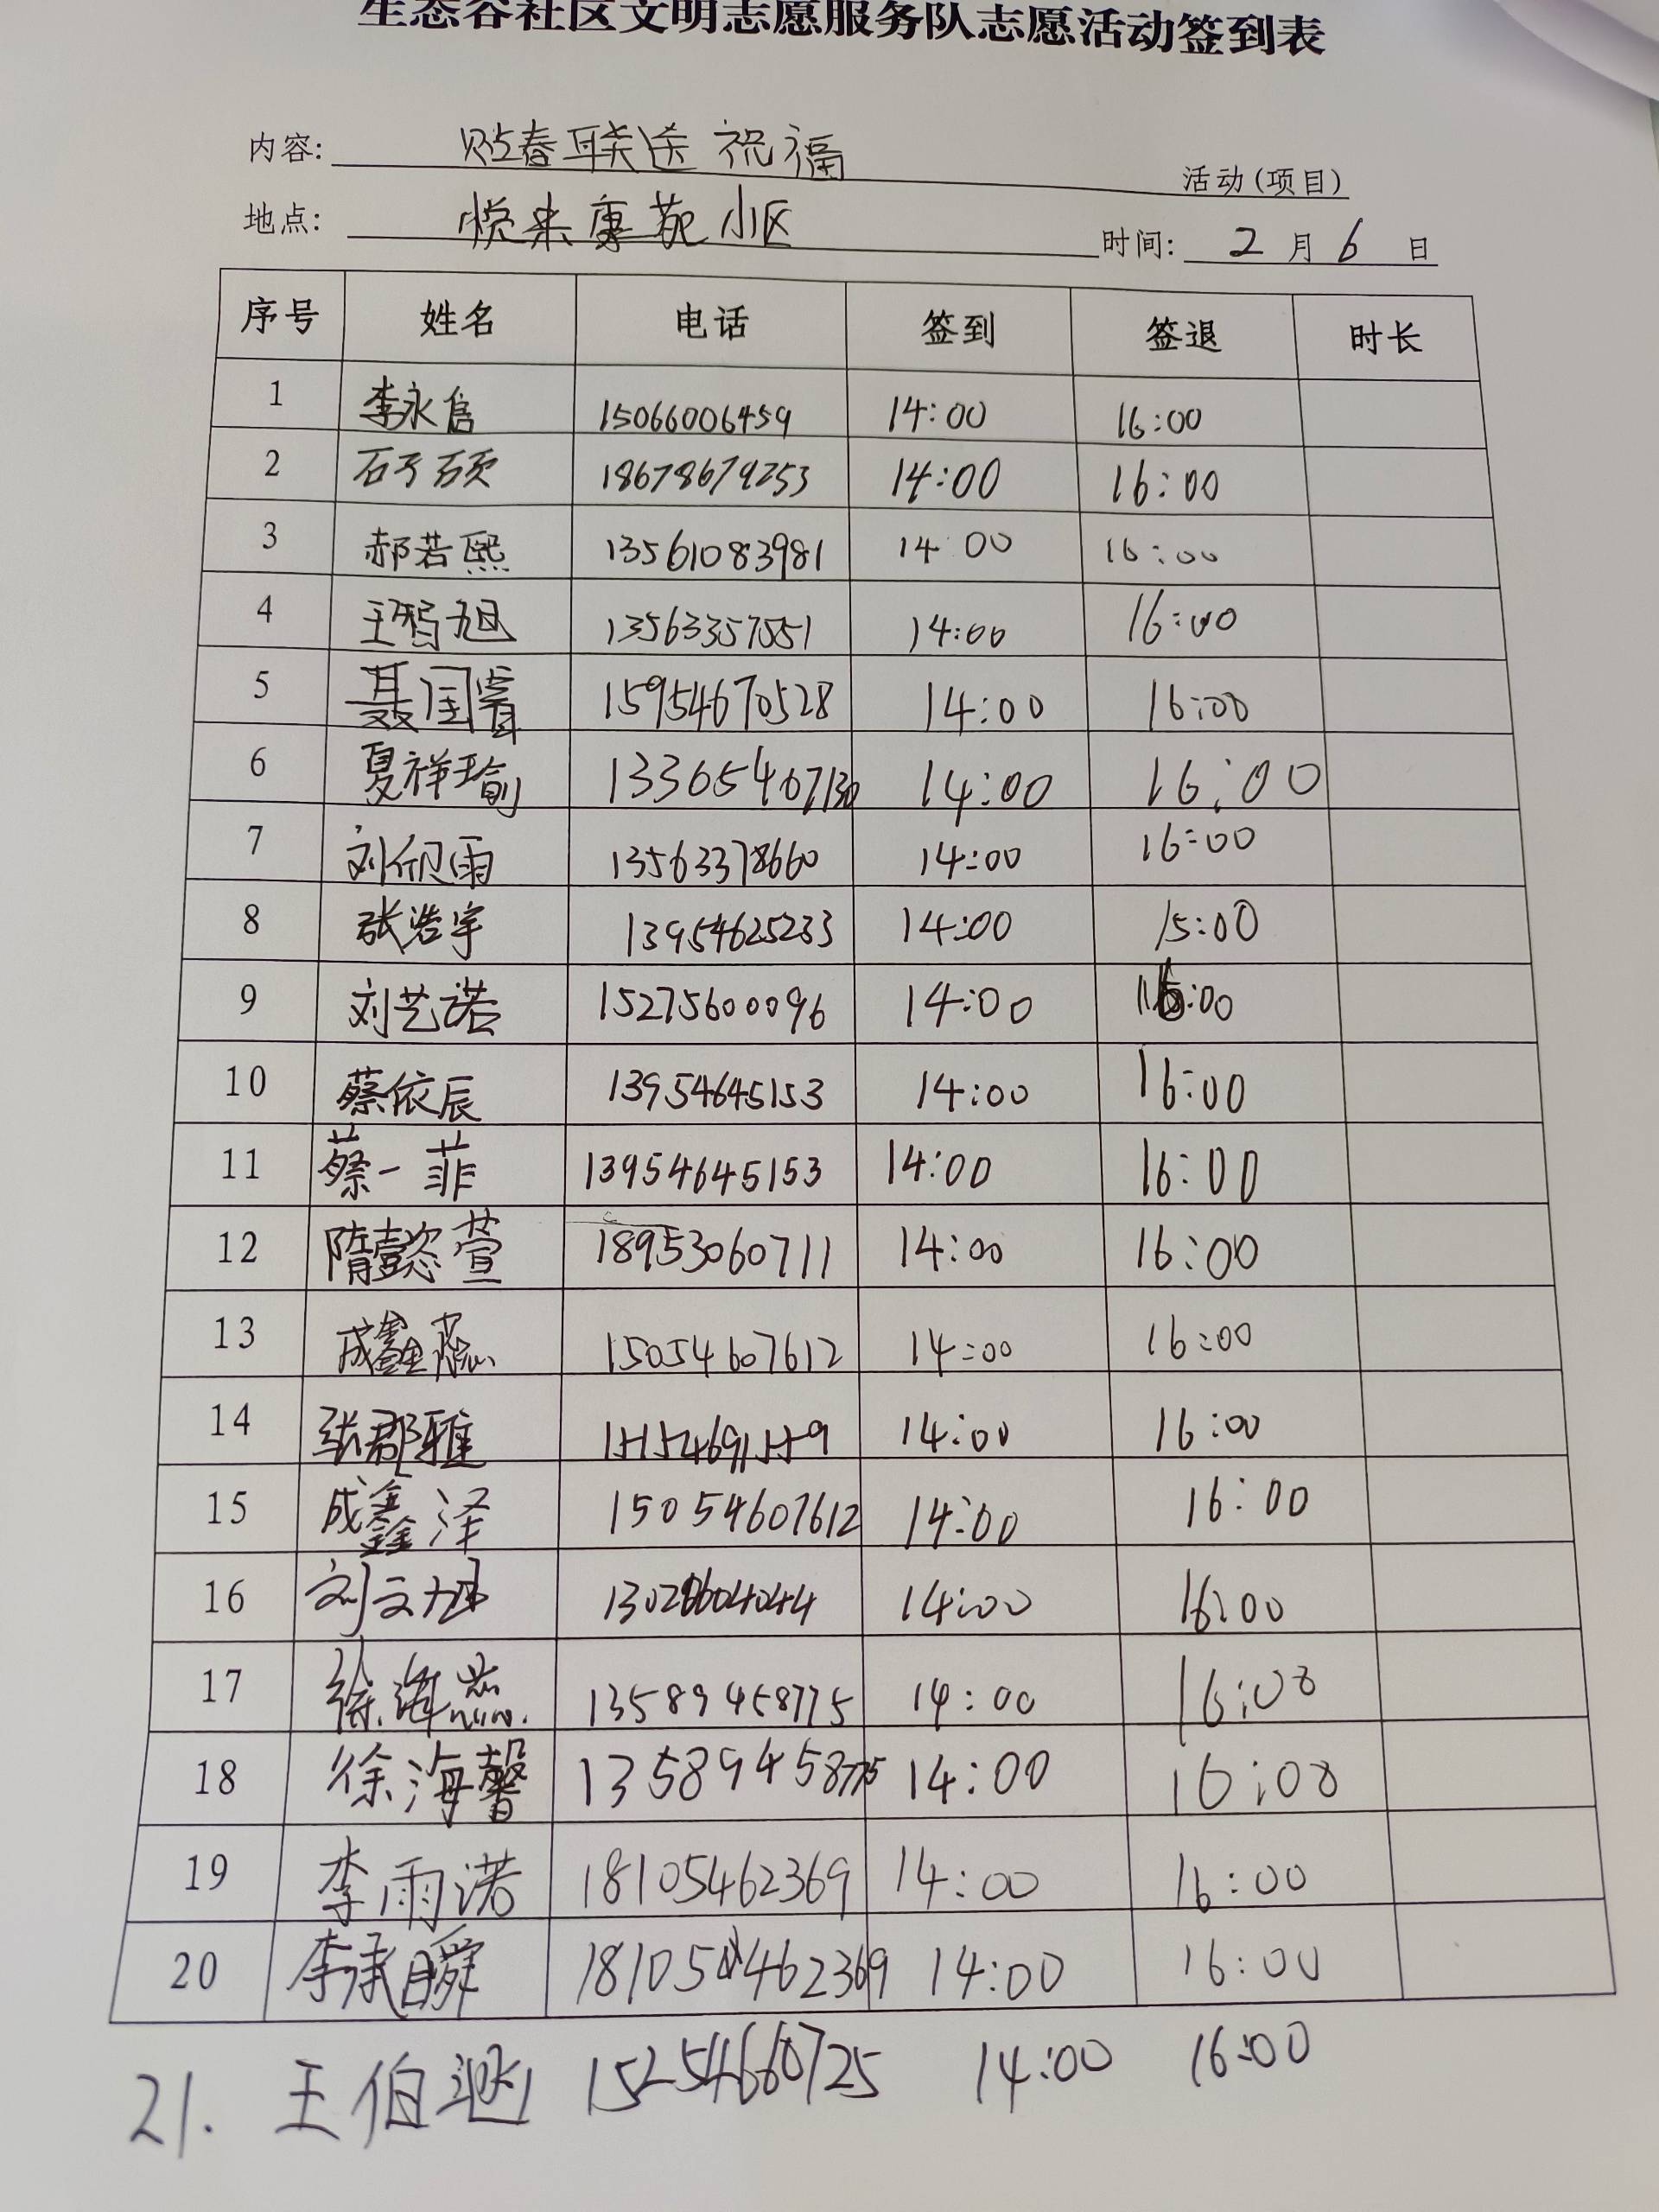 生态谷社区文明志愿服务队志愿活动签到表
内容: 贴春联送祝福 活动(项目)
地点: 悦来康苑小区 时间: 2月6日
序号 姓名 电话 签到 签退 时长
1 李永信 15066006459 14:00 16:00
2 石子硕 18678679253 14:00 16:00
3 郝若熙 13561083981 14:00 16:00
4 13563357551 14:00 16:00
5 聂国睿 15954670528 14:00 16:00
6 夏祥瑜 13365467130 14:00 16:00
7 刘欣雨 13563378660 14:00 16:00
8 张浩宇 13954625233 14:00 15:00
9 刘艺诺 15275600096 14:00 16:00
10 蔡依辰 13954645153 14:00 16:00
11 蔡一菲 13954645153 14:00 16:00
12 隋懿萱 18953060711 14:00 16:00
13 15054607612 14:00 16:00
14 张郡雅 14:00 16:00
15 成鑫泽 15054607612 14:00 16:00
16 14:00 16:00
17 徐海燕 13589458775 14:00 16:00
18 徐海馨 13589458775 14:00 16:00
19 李雨诺 18105462369 14:00 16:00
20 李承瞬 18105462369 14:00 16:00
21. 14:00 16:00